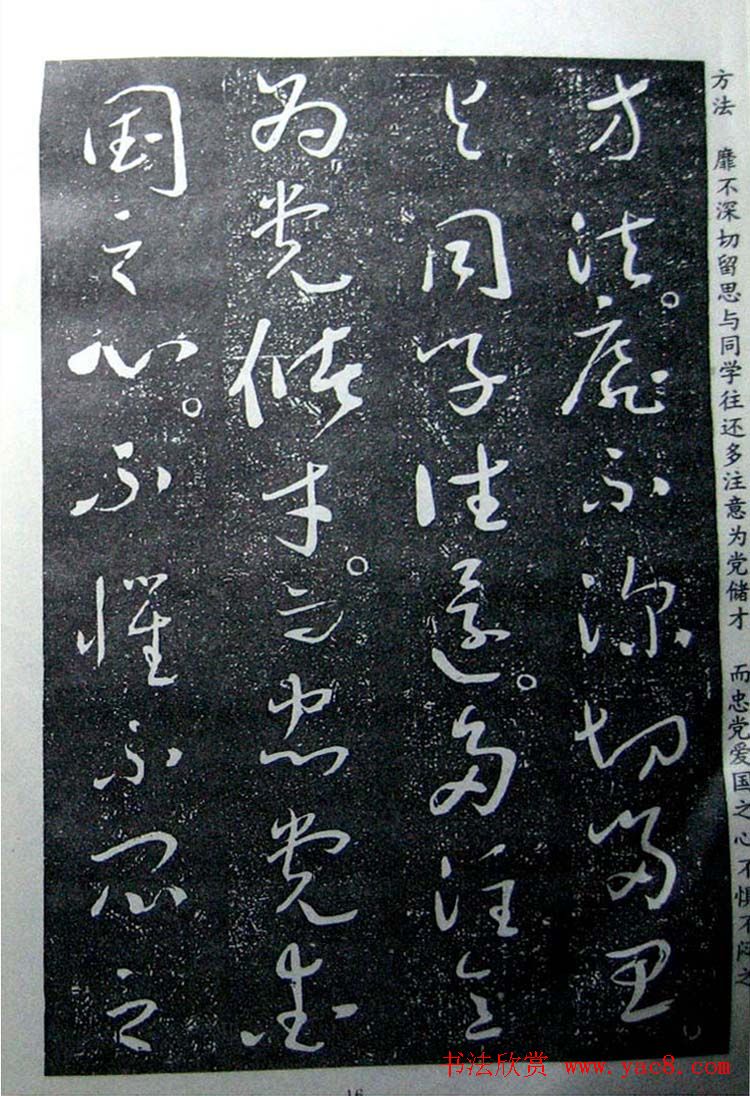 方法 靡不深切留思与同学往还多注意为党储才 而忠党爱国之心不不之
方法。靡不深切留思
与同学往还。多注意
为党储才。而忠党爱
国之心。不不之
书法欣赏 www.yac8.com
16